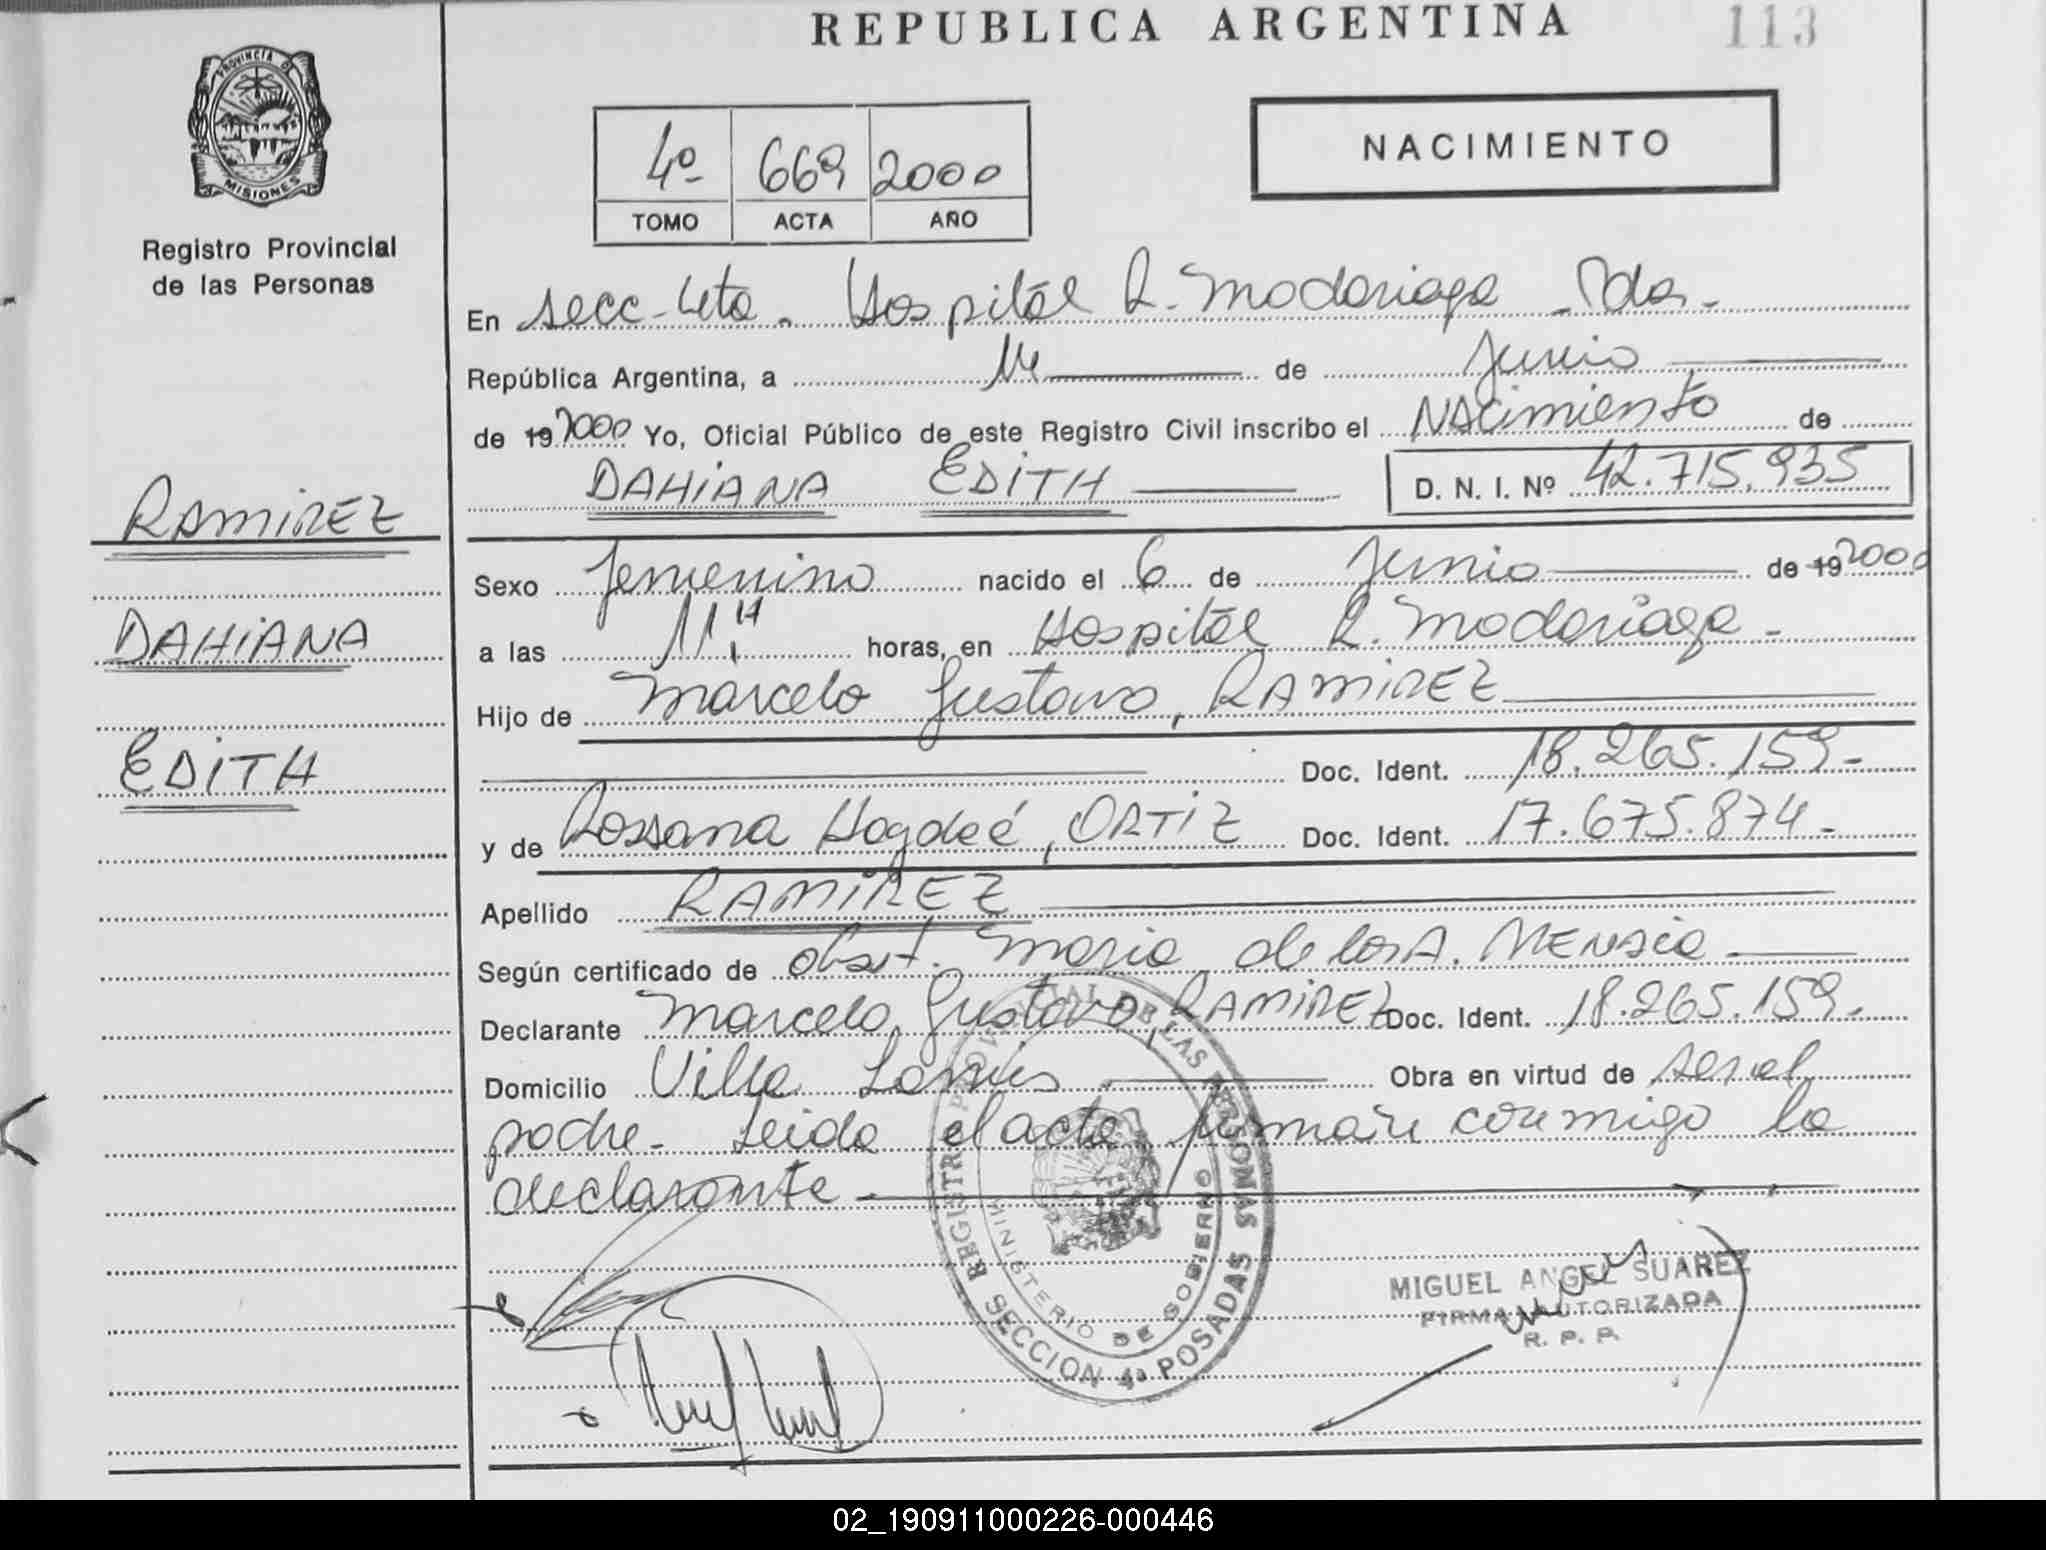 REPUBLICA ARGENTINA
113
PROVINCIA DE
MISIONES
Registro Provincial
de las Personas
4º 669 2000
TOMO ACTA AÑO
NACIMIENTO
En secc. 4ta. Hospital R. Madariaga - Pdas.
República Argentina, a 14 de Junio
de 19 2000 Yo, Oficial Público de este Registro Civil inscribo el NACimiento de
DAHIANA EDITH D. N. I. Nº 42.715.935
RAMIREZ
DAHIANA
EDITH
Sexo femenino nacido el 6 de Junio de 19 2000
a las 11 H horas, en Hospital R. Madariaga -
Hijo de Marcelo Gustavo, RAMIREZ
Doc. Ident. 18.265.159-
y de Rossana Haydeé, ORTIZ Doc. Ident. 17.675.874-
Apellido RAMIREZ
Según certificado de obst. Maria de los A.
Declarante Marcelo Gustavo, RAMIREZ Doc. Ident. 18.265.159-
Domicilio Villa Lanús Obra en virtud de ser el
padre- Leida el acta firman conmigo la
declarante
REGISTRO PROVINCIAL DE LAS PERSONAS
MINISTERIO DE GOBIERNO
SECCION 4a POSADAS
MIGUEL ANGEL SUAREZ
FIRMA AUTORIZADA
R. P. P.
02_190911000226-000446